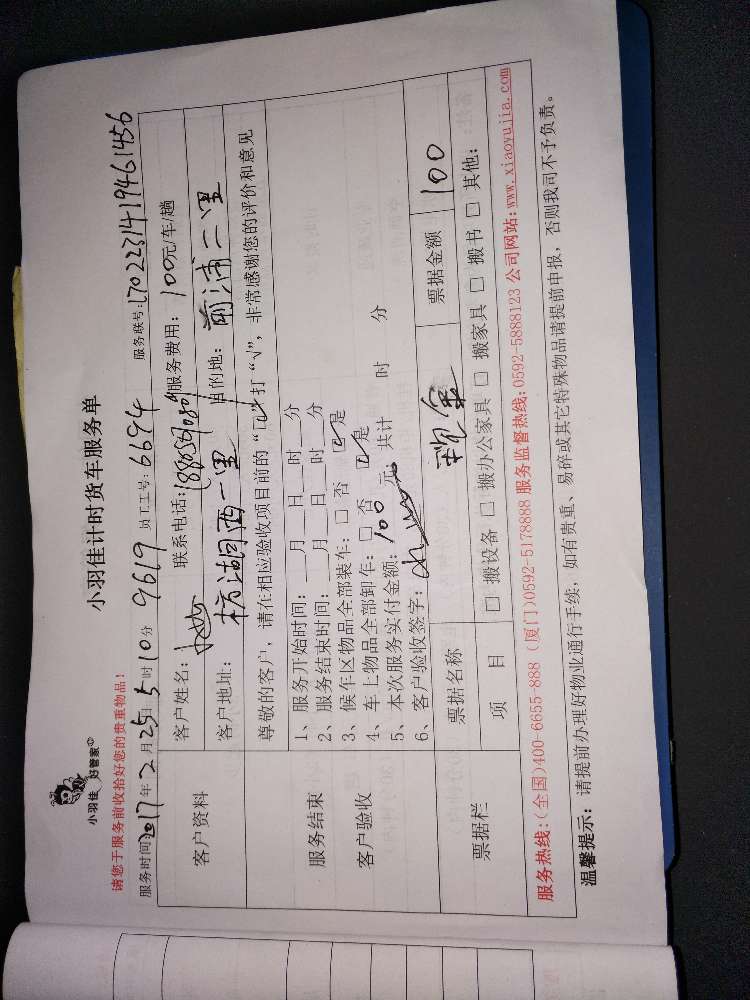 小羽佳 好管家
小羽佳计时货车服务单
请您于服务前收拾好您的贵重物品！
服务时间：2017年2月25日5时10分 9619 员工工号：6694 服务联号：1702231419461456
客户资料
客户姓名： 联系电话： 服务费用：100元/车/趟
客户地址： 湖西一里 目的地：前浦二里
服务结束
客户验收
尊敬的客户，请在相应验收项目前的“□”打“√”，非常感谢您的评价和意见
1、服务开始时间：__月__日__时__分
2、服务结束时间：__月__日__时__分
3、候车区物品全部装车：□ 否 ☑ 是
4、车上物品全部卸车：□ 否 ☑ 是
5、本次服务实付金额：100 元，共计 时 分
6、客户验收签字：
票据栏
票据名称 现金 票据金额 100
项 目 □ 搬设备 □ 搬办公家具 □ 搬家具 □ 搬书 □ 其他：
服务热线：(全国)400-6655-888 (厦门)0592-5178888 服务监督热线：0592-5888123 公司网站：www.xiaoyujia.com
温馨提示：请提前办理好物业通行手续，如有贵重、易碎或其它特殊物品请提前申报，否则我司不予负责。